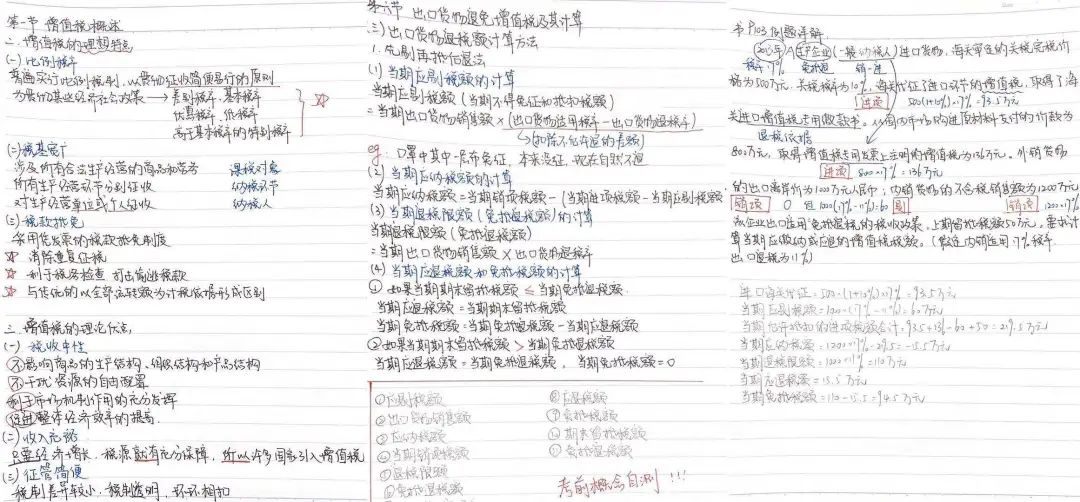 第一节 增值税概述
二、增值税的理想特点
(一) 比例税率
普遍实行比例税制，以贯彻征收简便易行的原则
为贯彻某些经济社会政策 → 差别税率、基本税率
优惠税率、低税率
高于基本税率的特别税率
(二) 税基宽广
涉及所有合法生产经营的商品和劳务 课税对象
所有生产经营环节分别征收 纳税环节
对生产经营单位或个人征收 纳税人
(三) 税款抵免
采用凭发票的税款抵免制度
☆ 消除重复征税
☆ 利于税务检查 打击偷逃税款
☆ 与传统的以全部流转额为计税依据形成区别
三、增值税的理论优点
(一) 税收中性
①不影响商品的生产结构、组织结构和产品结构
②不干扰资源的自由配置
利于市场机制作用的充分发挥
促进整体经济效率的提高
(二) 收入充裕
只要经济增长，税源就有充分保障，所以许多国家引入增值税
(三) 征管简便
税制差异较小，税制透明，环环相扣
第六节 出口货物退免增值税及其计算
(三) 出口货物退税额计算方法
1. 先剔再抵后退法
(1) 当期应剔税额的计算
当期应剔税额 (当期不得免征和抵扣税额)
= 当期出口货物销售额 × (出口货物适用税率 - 出口货物退税率)
↳ (扣除不允许退的差额)
eg: 口罩中其中一层布免征，本来没征，现在自然不退
(2) 当期应纳税额的计算
当期应纳税额 = 当期销项税额 - (当期进项税额 - 当期应剔税额)
(3) 当期退税限额 (免抵退税额) 的计算
当期退税限额 (免抵退税额)
= 当期出口货物销售额 × 出口货物退税率
(4) 当期应退税额和免抵税额的计算
① 如果当期期末留抵税额 ≤ 当期免抵退税额
当期应退税额 = 当期期末留抵税额
当期免抵税额 = 当期免抵退税额 - 当期应退税额
② 如果当期期末留抵税额 > 当期免抵退税额
当期应退税额 = 当期免抵退税额，当期免抵税额 = 0
①应剔税额 ⑧应退税额
②出口货物销售额 ⑨免抵税额
③应纳税额 ⑩期末留抵税额
④当期销项税额 ⑪免抵退税额
⑤退税限额
⑥免抵退税额
考前概念自测!!!
书P103例题详解
A生产企业(一般纳税人)进口货物，海关审定的关税完税价
税率:17% 免抵退 销-进
格为500万元，关税税率为10%，海关代征了进口环节的增值税，取得了海
进项 500(1+10%)×17%=93.5万元
关进口增值税专用缴款书。从国内市场购进原材料支付的价款为
退税依据
800万元，取得增值税专用发票上注明的增值税为136万元，外销货物
进项 800×17%=136万元
的出口离岸价为1000万元人民币；内销货物的不含税销售额为1200万元
销项 0 但 1000(17%-11%)=60 剔 销项 1200×17%
该企业出口适用"免抵退"税的税收政策，上期留抵税额50万元，要求计
算当期应缴纳或应退的增值税税额。(假定内销适用17%税率
出口退税为11%)
进口海关代征：500×(1+10%)×17%=93.5万元
当期应剔税额=1000×(17%-11%)=60万元
当期允许抵扣的进项税额合计=93.5+136-60+50=219.5万元
当期应纳税额=1200×17%-219.5=-15.5万元
当期退税限额=1000×11%=110万元
当期应退税额=15.5万元
当期免抵税额=110-15.5=94.5万元